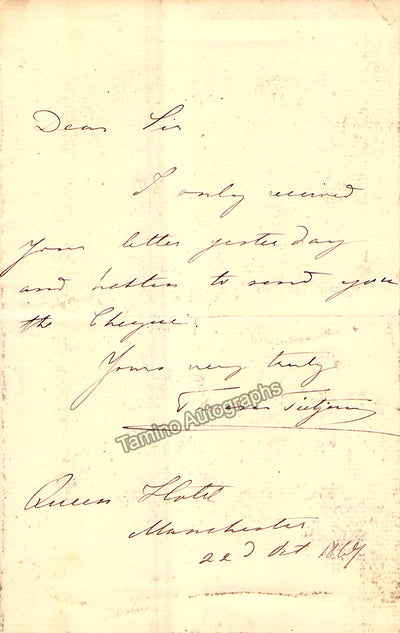 Dear Sir
I only received
your letter yesterday
and hasten to send you
the Cheque.
Yours very truly
Teresa Tietjens
Tamino Autographs
Queens Hotel
Manchester
22d Oct 1867